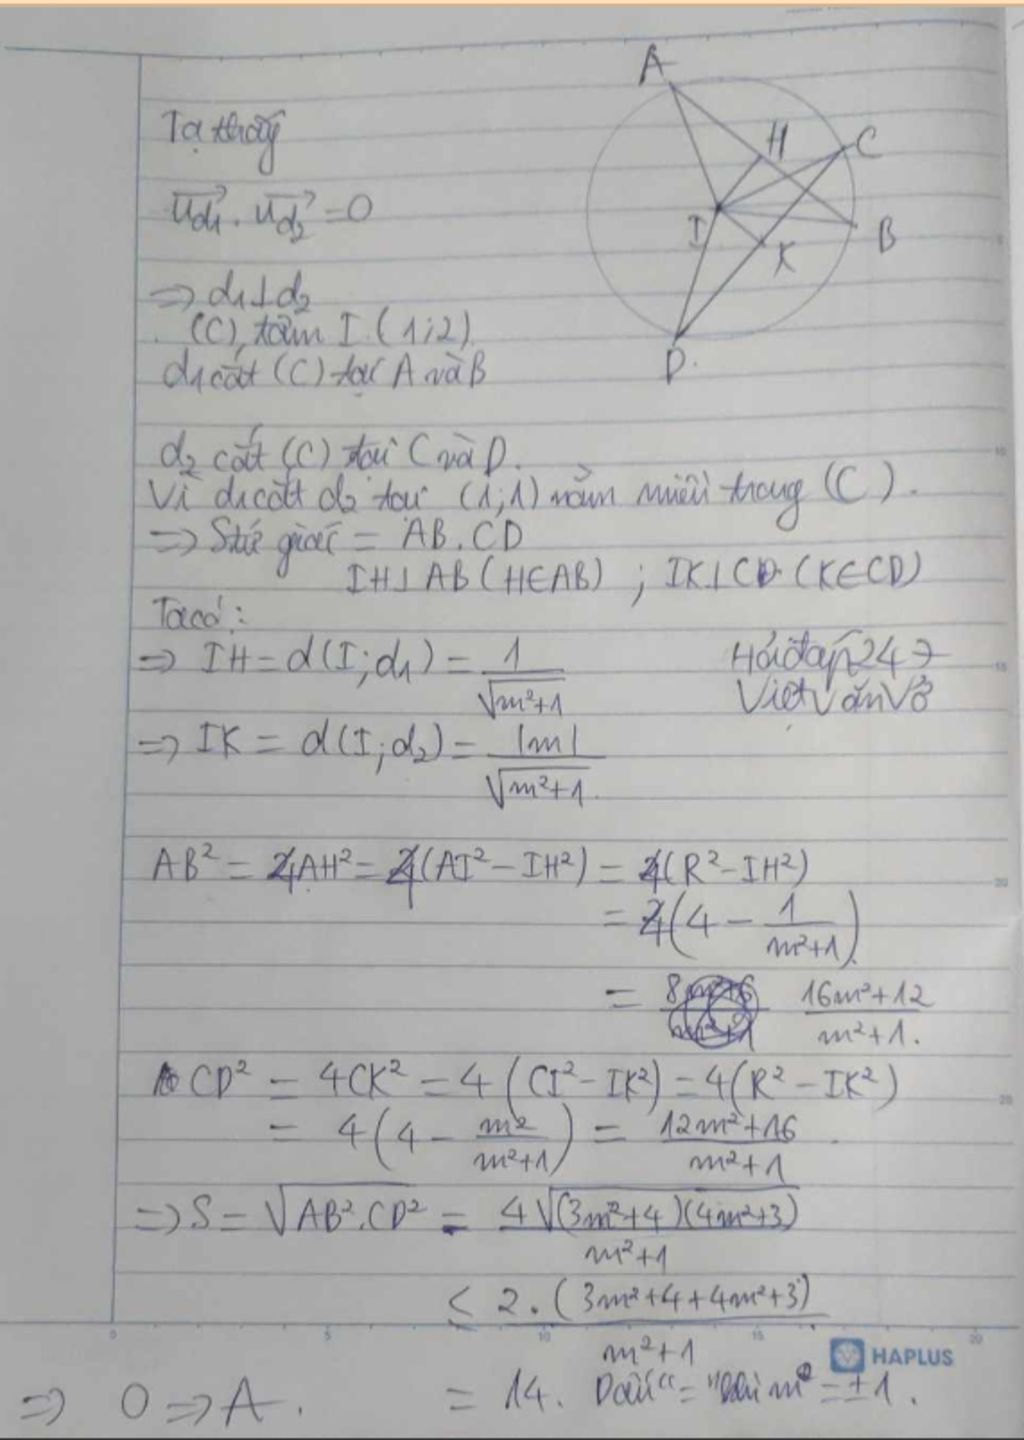 A
H
C
I
K
B
D.
Ta thấy
u_{d1}⃗ . u_{d2}⃗ = 0
=> d1 ⊥ d2
(C), tâm I (1;2)
d1 cắt (C) tại A và B
d2 cắt (C) tại C và D.
Vì d1 cắt d2 tại (1;1) nằm miền trong (C).
=> Stứ giác = AB.CD
IH ⊥ AB (H∈AB) ; IK ⊥ CD (K∈CD)
Ta có:
=> IH = d(I;d1) = 1/√(m²+1)
Hỏi đáp 247
Viet Văn Vở
=> IK = d(I;d2) = |m|/√(m²+1)
AB² = 4AH² = 4(AI² - IH²) = 4(R² - IH²)
= 4(4 - 1/(m²+1))
= (16m²+12)/(m²+1).
CD² = 4CK² = 4(CI² - IK²) = 4(R² - IK²)
= 4(4 - m²/(m²+1)) = (12m²+16)/(m²+1).
=> S = √(AB².CD²) = 4√((3m²+4)(4m²+3))/(m²+1)
< 2.(3m²+4+4m²+3)/(m²+1)
0 5 10 15 20
HAPLUS
= 14. Dấu "=" khi m = ±1.
=> 0 => A.